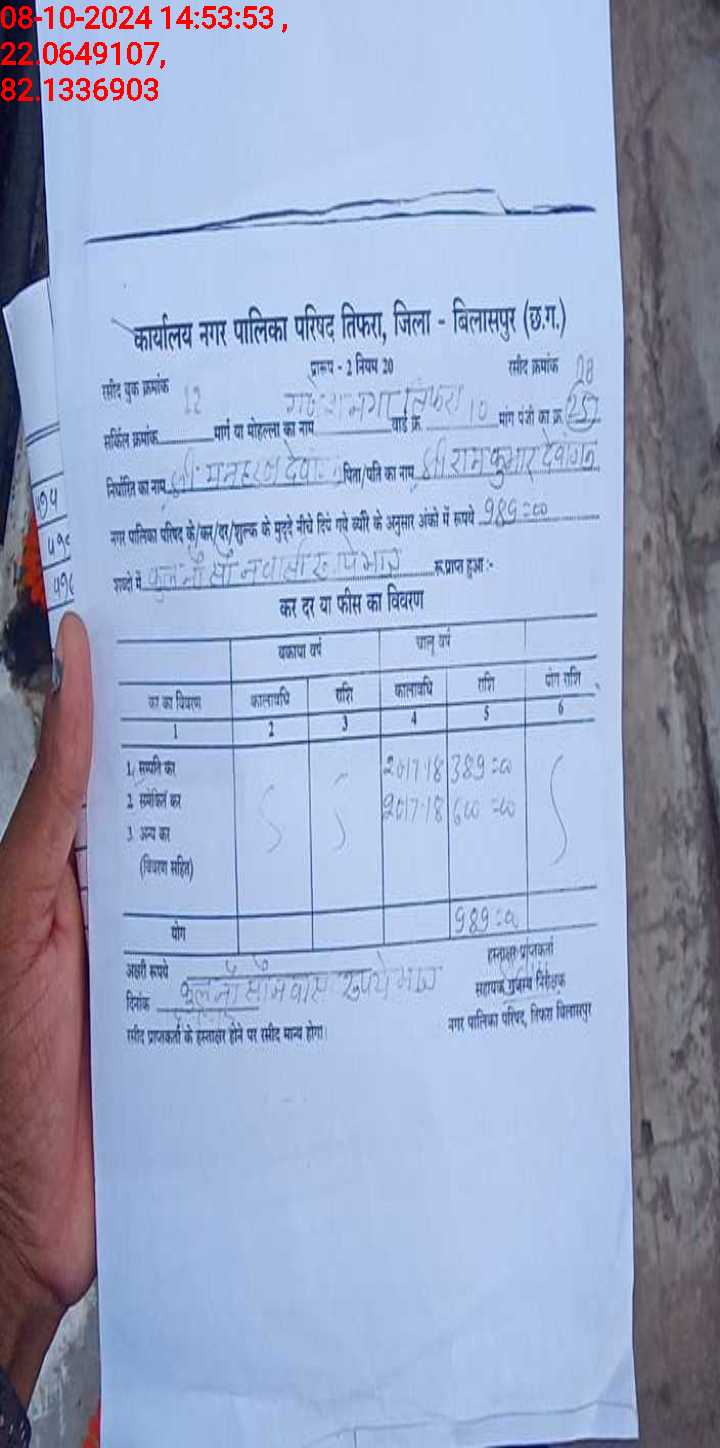 08-10-2024 14:53:53 ,
22.0649107,
82.1336903
कार्यालय नगर पालिका परिषद तिफरा, जिला - बिलासपुर (छ.ग.)
प्रारूप - 2 नियम 20
रसीद बुक क्रमांक 12 रसीद क्रमांक 08
सर्किल क्रमांक मार्ग या मोहल्ला का नाम तिफरा वार्ड क्र. 10 मांग पंजी का क्र. 257
निर्धारित का नाम श्री मनहरण देवा. पिता/पति का नाम श्री रामकुमार देवांगन
नगर पालिका परिषद के/कर/दर/शुल्क के मुददे नीचे दिये गये ब्यौरे के अनुसार अंको में रूपये 989=00
शब्दो में कुल नौ सौ नवासी रूपये मात्र रू प्राप्त हुआ :-
कर दर या फीस का विवरण
बकाया वर्ष चालू वर्ष
कर का विवरण कालावधि राशि कालावधि राशि योग राशि
1 2 3 4 5 6
1. सम्पत्ति कर 2017-18 389=00
2. समेकित कर 2017-18 600=00
3. अन्य कर
(विवरण सहित)
योग 989=00
अक्षरी रूपये कुल नौ सौ नवासी रूपये मात्र हस्ताक्षर प्राप्तकर्ता
दिनांक सहायक राजस्व निरीक्षक
रसीद प्राप्तकर्ता के हस्ताक्षर होने पर रसीद मान्य होगा। नगर पालिका परिषद, तिफरा बिलासपुर